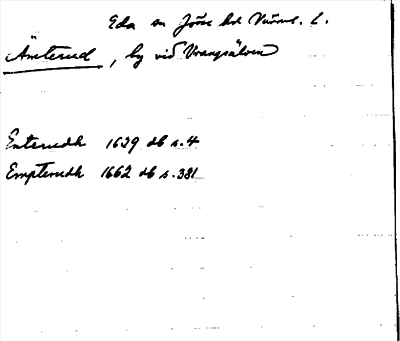 Eda sn Jösse hd Värml. l.
Ämterud, by vid Vrangsälven
Enterudh 1639 db s. 4
Empterudh 1662 db s. 381